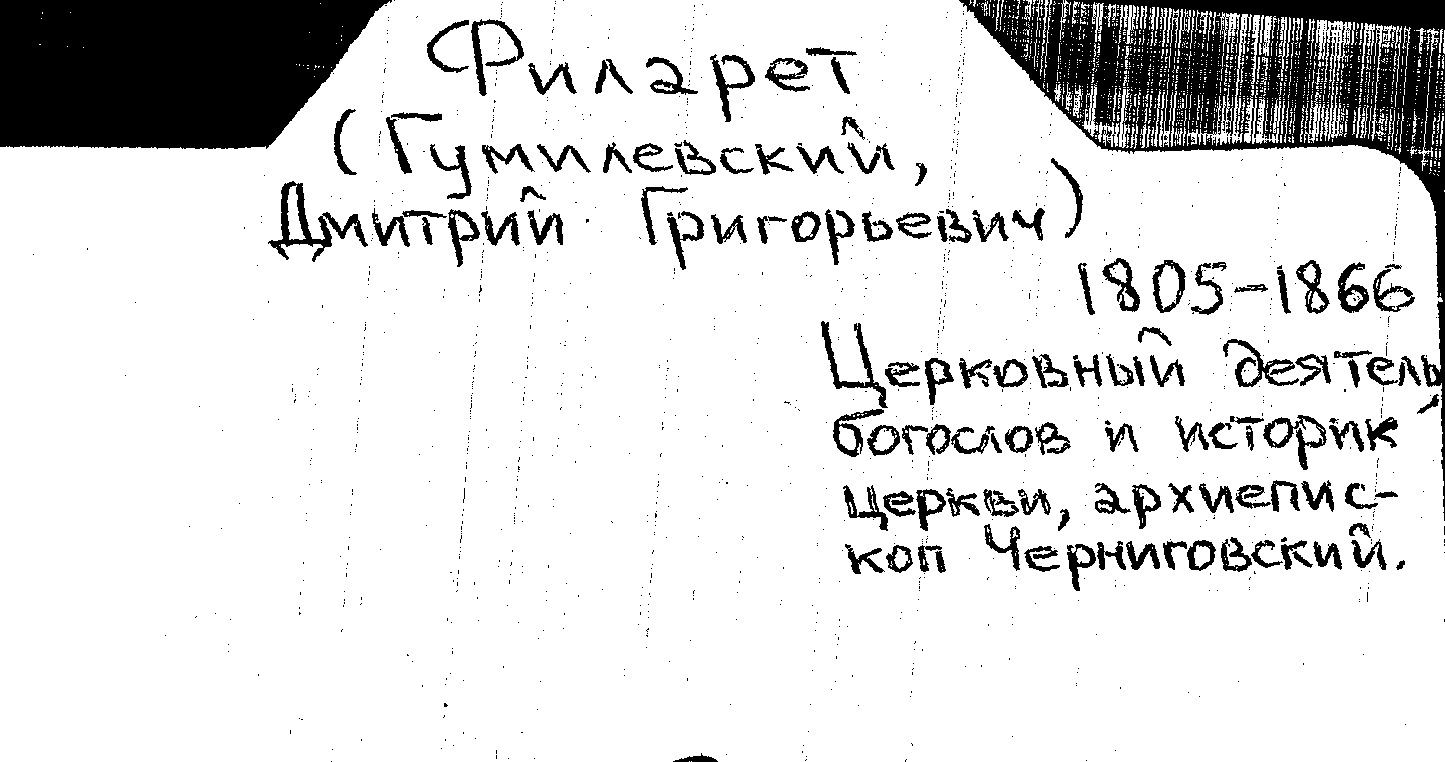 Филарет
(Гумилевский,
Дмитрий Григорьевич)
1805-1866
Церковный деятель,
богослов и историк
церкви, архиепис-
коп Черниговский.